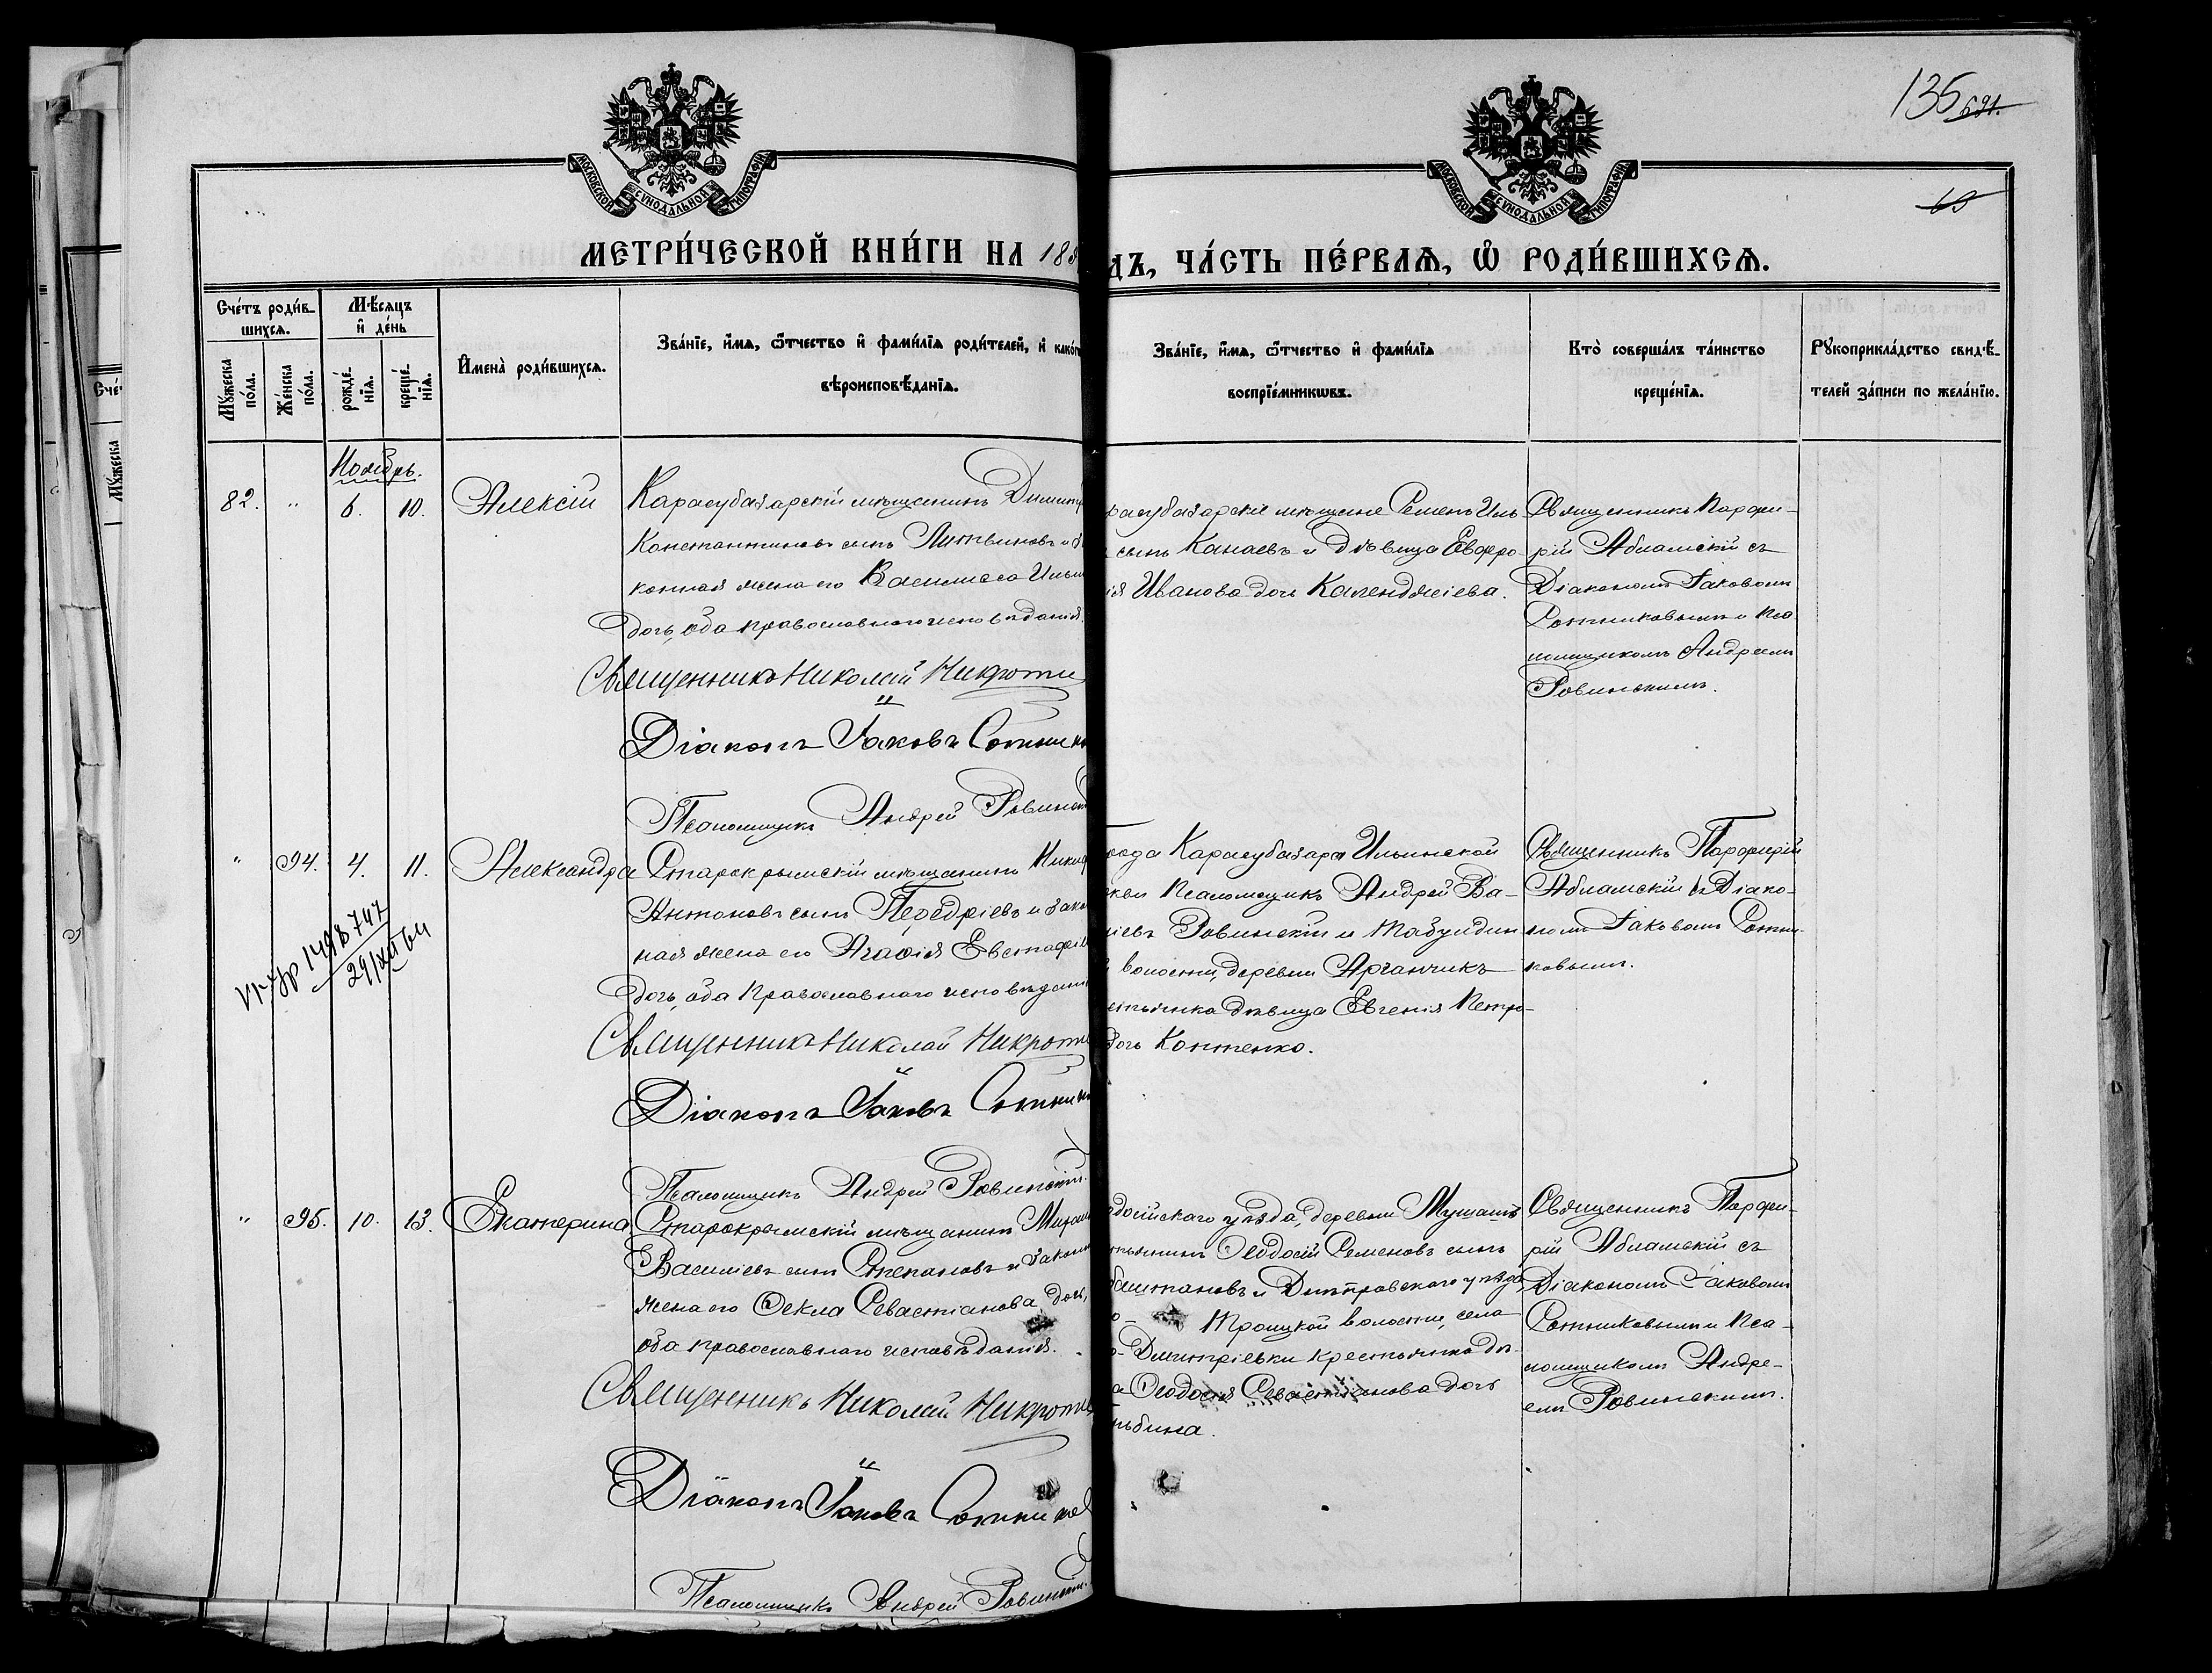 135 691.
65
МОСКОВСКОЙ СѴНОДАЛЬНОЙ ТИПОГРАФІИ
МОСКОВСКОЙ СѴНОДАЛЬНОЙ ТИПОГРАФІИ
МЕТРИ́ЧЕСКОЙ КНИ́ГИ НА 18
ДЪ, ЧА́СТЬ ПЕ́РВАѦ, Ѽ РОДИ́ВШИХСѦ.
Сче́тъ роди́в-
шихсѧ.
Мѣ́сѧцъ
и҆ де́нь
Мꙋ́жеска
по́ла.
Же́нска
по́ла.
рожде́-
нїѧ.
креще́-
нїѧ.
И҆мена̀ роди́вшихсѧ.
Зва́нїе, и҆́мѧ, ѻ҆́тчество и҆ фами́лїѧ роди́телей, и҆ како́г
вѣроисповѣ́данїѧ.
Зва́нїе, и҆́мѧ, ѻ҆́тчество и҆ фами́лїѧ
воспрїе́мникѡвъ.
Кто̀ соверша́лъ та́инство
креще́нїѧ.
Рꙋкоприкла́дство свидѣ́-
телей за́писи по жела́нїю.
Ноябрь.
82. " 6. 10. Алексій
Карасубазарскій мѣщанинъ Димит
Константиновъ сынъ Литвиновъ и за
конная жена его Василиса Ильи
дочь, оба православнаго исповѣданія.
Священникъ Николай
Діаконъ Іаковъ Сотник
Псаломщикъ Андрей Ровинс
расубазарскіе мѣщане Семенъ Иль
сынъ Канаевъ и дѣвица Евфро-
ія Иванова дочь Календжіева.
Священникъ Парфи-
рій Абламскій съ
Діакономъ Іаковомъ
Сотниковымъ и Пса
ломщикомъ Андреемъ
Ровинскимъ.
" 94. 4. 11. Александра
Старокрымскій мѣщанинъ Никиф
Антоновъ сынъ Передріевъ и зако
ная жена его Агафія Евстафіе
дочь, оба Православнаго исповѣдані
Священникъ Николай
Діаконъ Іаковъ Сотник
Псаломщикъ Андрей Ровинскій.
1498747
29/XII 64
рода Карасубазара Ильинской
ркви Псаломщикъ Андрей Ва-
ліевъ Ровинскій и Табулдин
й волости, деревни Арганчикъ
естьянка дѣвица Евгенія Петро-
дочь Коптенко.
Священникъ Парфирій
Абламскій съ Діако-
номъ Іаковомъ Сотни-
ковымъ.
" 95. 10. 13. Екатерина
Старокрымскій мѣщанинъ
Василіевъ сынъ Степановъ и закон
жена его Ѳекла Севастіанова дочь,
оба православнаго исповѣданія.
Священникъ Николай
Діаконъ Іаковъ Сотников
Псаломщикъ Андрей Ровинскій.
одосійскаго уѣзда, деревни Мушашъ
стьянинъ Ѳеодосій Семеновъ сынъ
баштановъ и Днѣпровскаго уѣзда,
Троицкой волости, села
Дмитріевки крестьянка дѣ-
а Ѳеодосія Севастіанова дочь
ьбина.
Священникъ Парфи-
рій Абламскій съ
Діакономъ Іаковомъ
Сотниковымъ и Пса-
ломщикомъ Андре-
емъ Ровинскимъ.